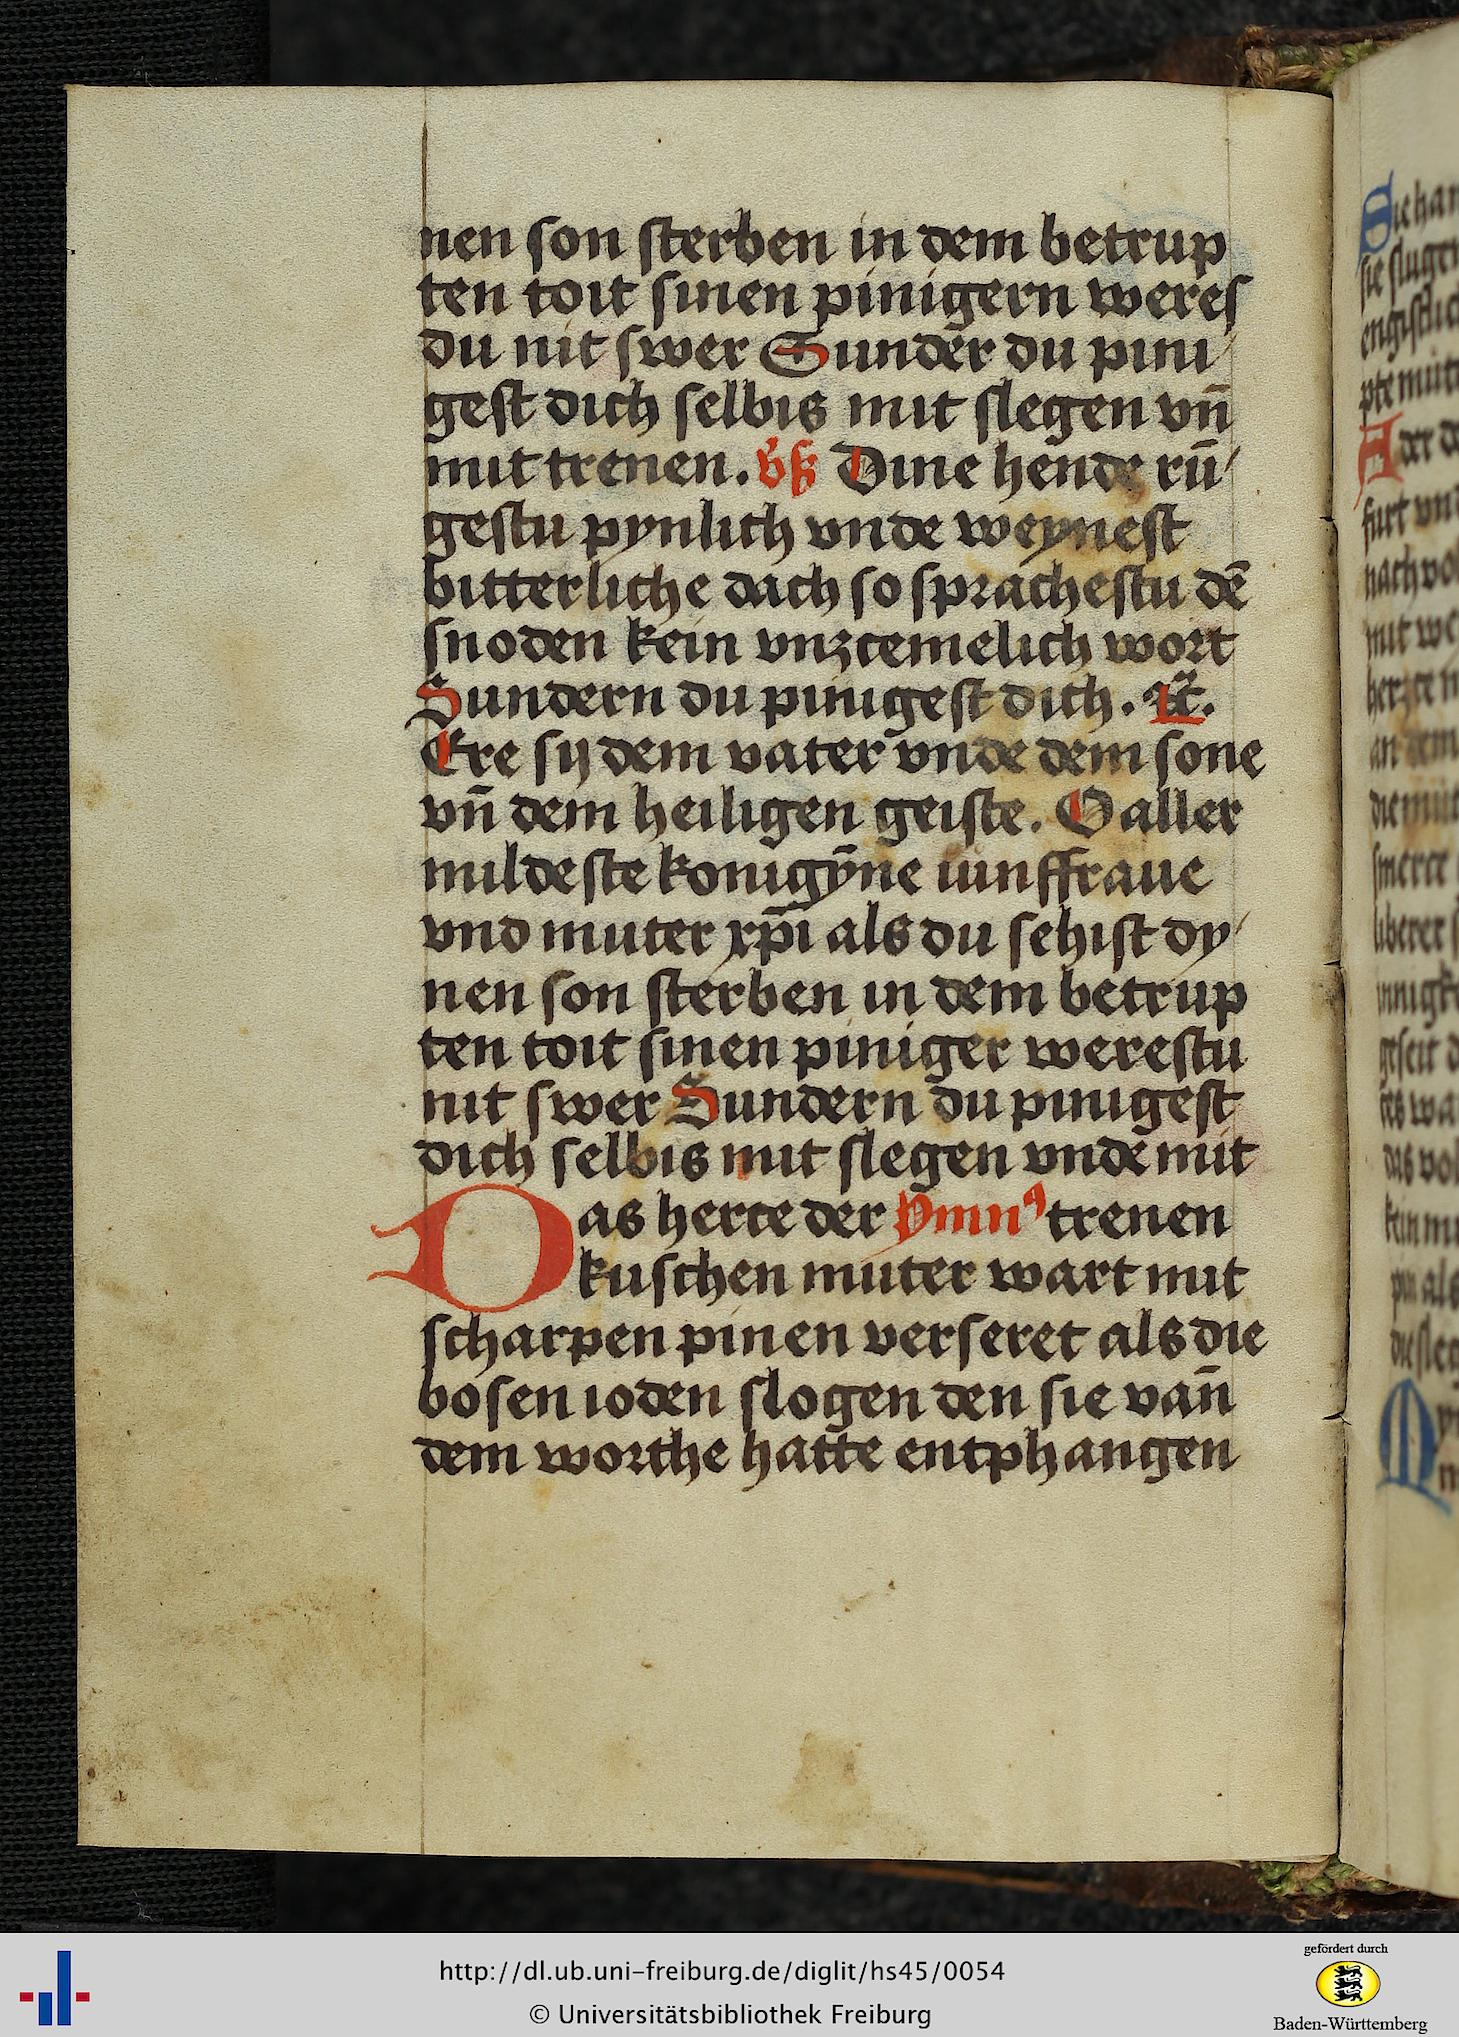 nen son sterben in dem betrup
ten toit sinen pinigern weres
du nit swer Sunder du pini
gest dich selbis mit slegen vn̄
mit trenen. Dine hende rū
gestu pynlich vnde weynest
bitterliche dach so sprachestu dē
snoden kein vnzcemelich wort
Sundern du pinigest dich.
Ere sij dem vater vnde dem sone
vn̄ dem heiligen geiste. O aller
mildeste konigȳne iunffraue
vnd muter xp̄i als du sehist dy
nen son sterben in dem betrup
ten toit sinen piniger werestu
nit swer Sundern du pinigest
dich selbis mit slegen vnde mit
Das herce der ymnꝰ trenen
kuschen muter wart mit
scharpen pinen verseret als die
bosen ioden slogen den sie van̄
dem worthe hatte entphangen
http://dl.ub.uni-freiburg.de/diglit/hs45/0054
© Universitätsbibliothek Freiburg
gefördert durch
Baden-Württemberg